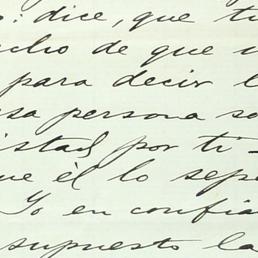 : dice, que tu
cho de que u
para decir l
sa persona so
istad por ti -
ue él lo sepa
Yo en confia
supuesto la